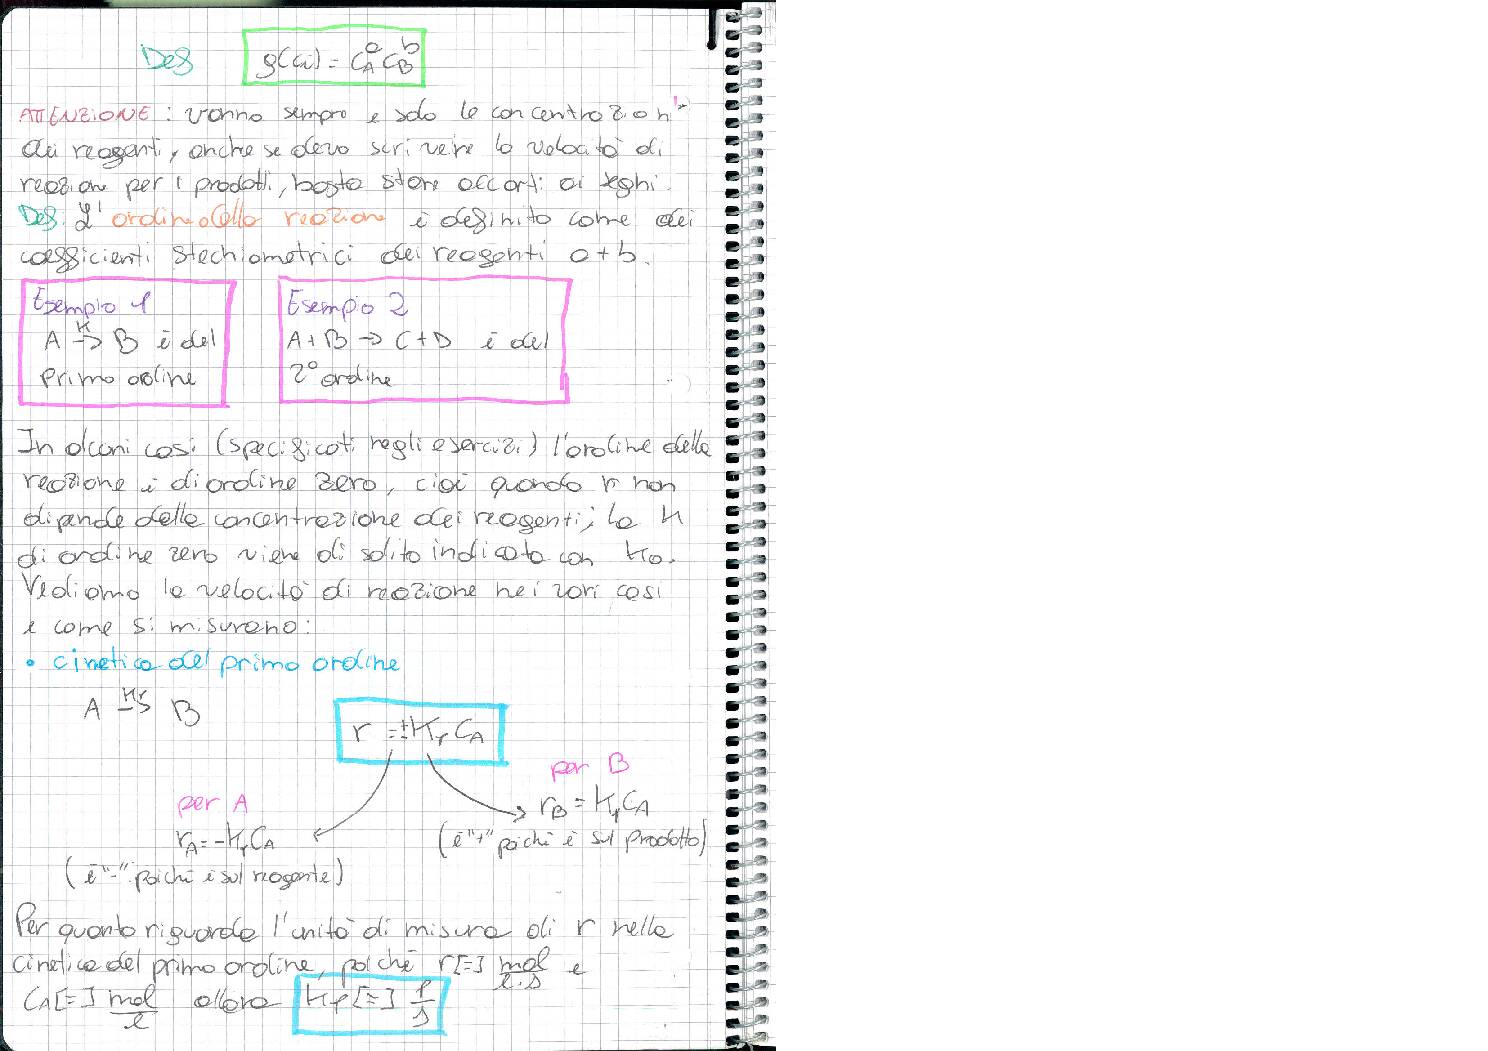 Def g(ci) = C_A^a C_B^b
ATTENZIONE : vanno sempre e solo le concentrazioni
dei reagenti, anche se devo scrivere la velocità di
reazione per i prodotti, basta stare accorti ai segni.
Def. L'ordine della reazione è definito come dei
coefficienti stechiometrici dei reagenti a+b.
Esempio 1
A →^K B è del
primo ordine
Esempio 2
A+B → C+D è del
2° ordine
In alcuni casi (specificati negli esercizi) l'ordine della
reazione è di ordine zero, cioè quando r non
dipende dalla concentrazione dei reagenti; la K
di ordine zero viene di solito indicata con K0.
Vediamo la velocità di reazione nei vari casi
e come si misurano:
• cinetica del primo ordine
A →^Kr B
r = ±Kr C_A
per A
r_A = -Kr C_A
(è "-" poichè è sul reagente)
per B
r_B = Kr C_A
(è "+" poichè è sul prodotto)
Per quanto riguarda l'unità di misura di r nella
cinetica del primo ordine, poichè r[=] mol/l·s e
C_A[=] mol/l allora Kr[=] 1/s